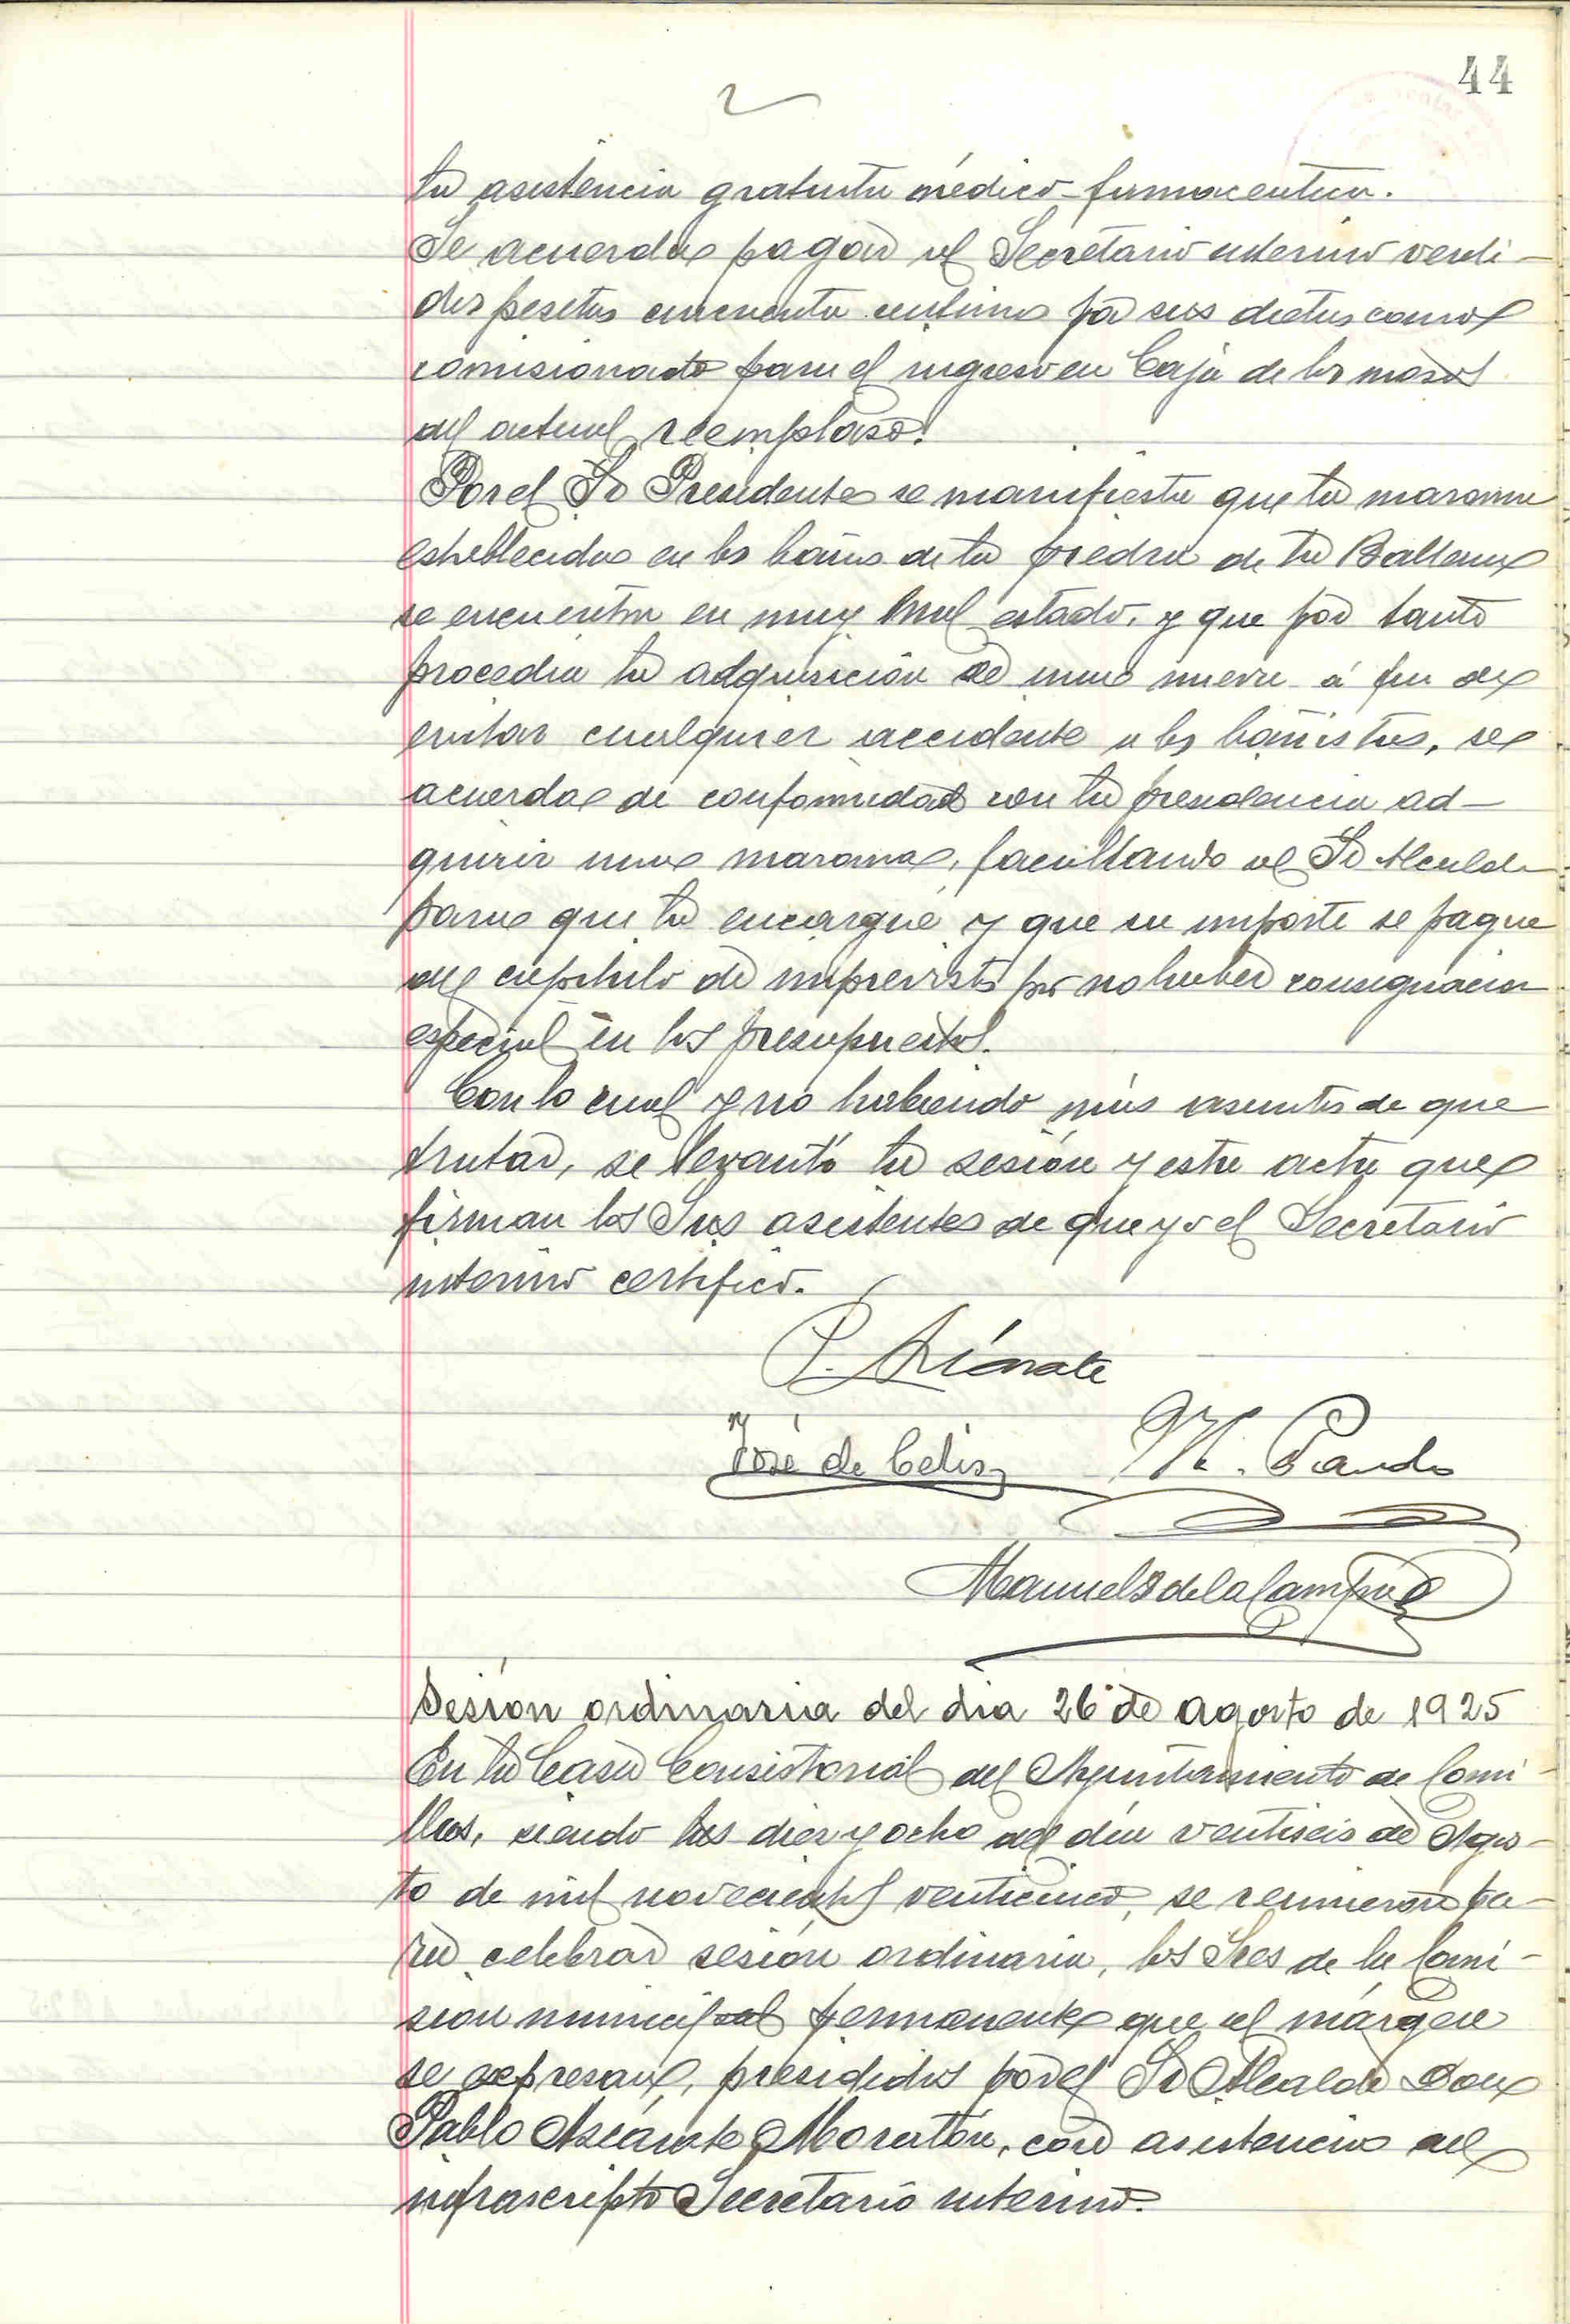 44
la asistencia gratuita médico-farmaceutica.
Se acuerda pagar al Secretario interino
dos pesetas cincuenta centimos por sus dietas como
comisionado para el ingreso en Caja de los mozos
del actual reemplazo.
Por el Sr Presidente se manifiesta que la maroma
establecida en los baños de la piedra de la
se encuentra en muy mal estado, y que por tanto
procedia la adquisición de una nueva á fin de
evitar cualquier accidente a los bañistas, se
acuerda de conformidad con la presidencia ad-
quirir una maroma, facultando al Sr Alcalde
para que la encargue y que su importe se pague
del capitulo de imprevistos por no haber consignación
especial en los presupuestos.
Con lo cual y no habiendo más asuntos de que
tratar, se levantó la sesión y esta acta que
firman los Sres asistentes de que yo el Secretario
interino certifico.
José de Celis M. Pando
Manuel de la Campa
Sesión ordinaria del dia 26 de agosto de 1925
En la Casa Consistorial del Ayuntamiento de Comi-
llas, siendo las diez y ocho del día ventiseis de Agos-
to de mil novecientos venticinco, se reunieron pa-
ra celebrar sesión ordinaria, los Sres de la Comi-
sion municipal permanente que al márgen
se expresan, presididos por el Sr Alcalde Don
Pablo Moratón, con asistencia del
infrascripto Secretario interino.